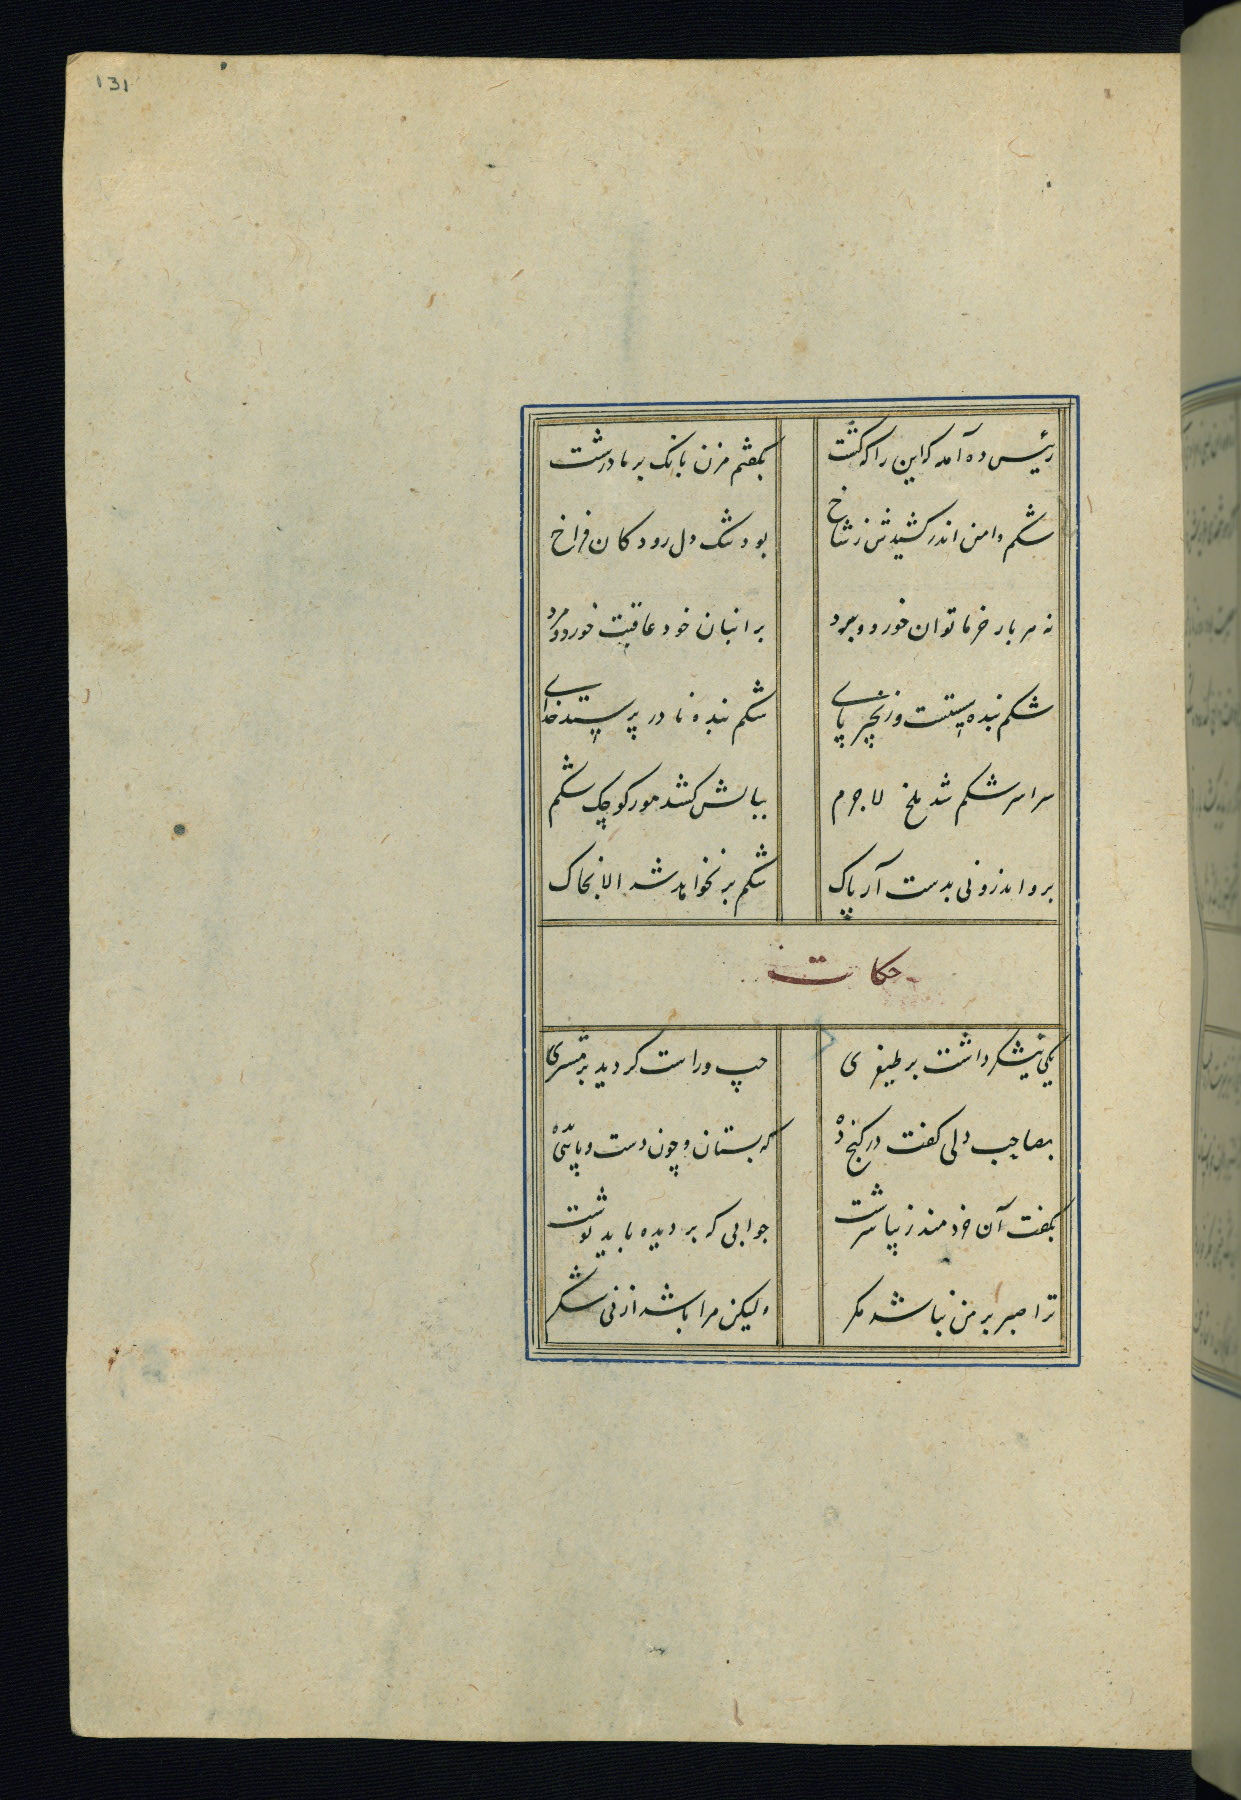 131
رئیس ده آمد که این را که کشت
بگفتم مزن بانک بر ما درشت
شکم دامن اندر کشیدش ز شاخ
بود تنک دل رودکان فراخ
نه هر بار خرما توان خورد و برد
بر انبان خود عاقبت خورد و مرد
شکم بند دستست و زنجیر پای
شکم بنده نادر پرستد خدای
سراسر شکم شد ملخ لاجرم
بپایش کشد مور کوچک شکم
برو اندرونی بدست آر پاک
شکم پر نخواهد شد الا بخاک
حکایت
یکی نیشکر داشت بر طیفری
چپ و راست کردید بر مشتری
بصاحب دلی کفت در کنج ده
که بستان و چون دست و پابی بده
بگفت آن خردمند زیبا سرشت
جوابی که بر دیده باید نوشت
ترا صبر بر من نباشد مکر
ولیکن مرا باشد از نی شکر